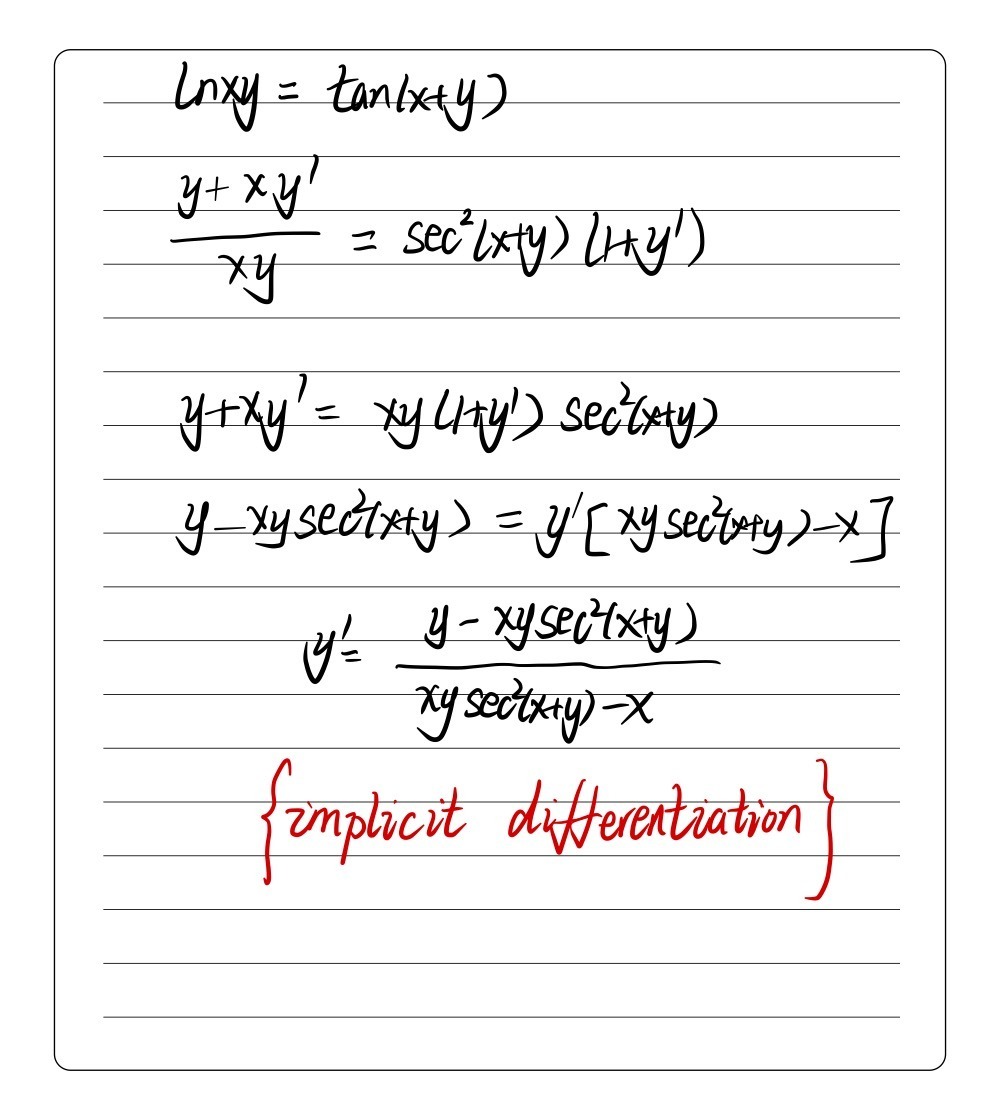 lnxy = tan(x+y)
(y + xy')/(xy) = sec²(x+y)(1+y')
y+xy' = xy(1+y') sec²(x+y)
y – xy sec²(x+y) = y'[xy sec²(x+y) – x]
y' = (y - xy sec²(x+y))/(xy sec²(x+y) – x)
{implicit differentiation}